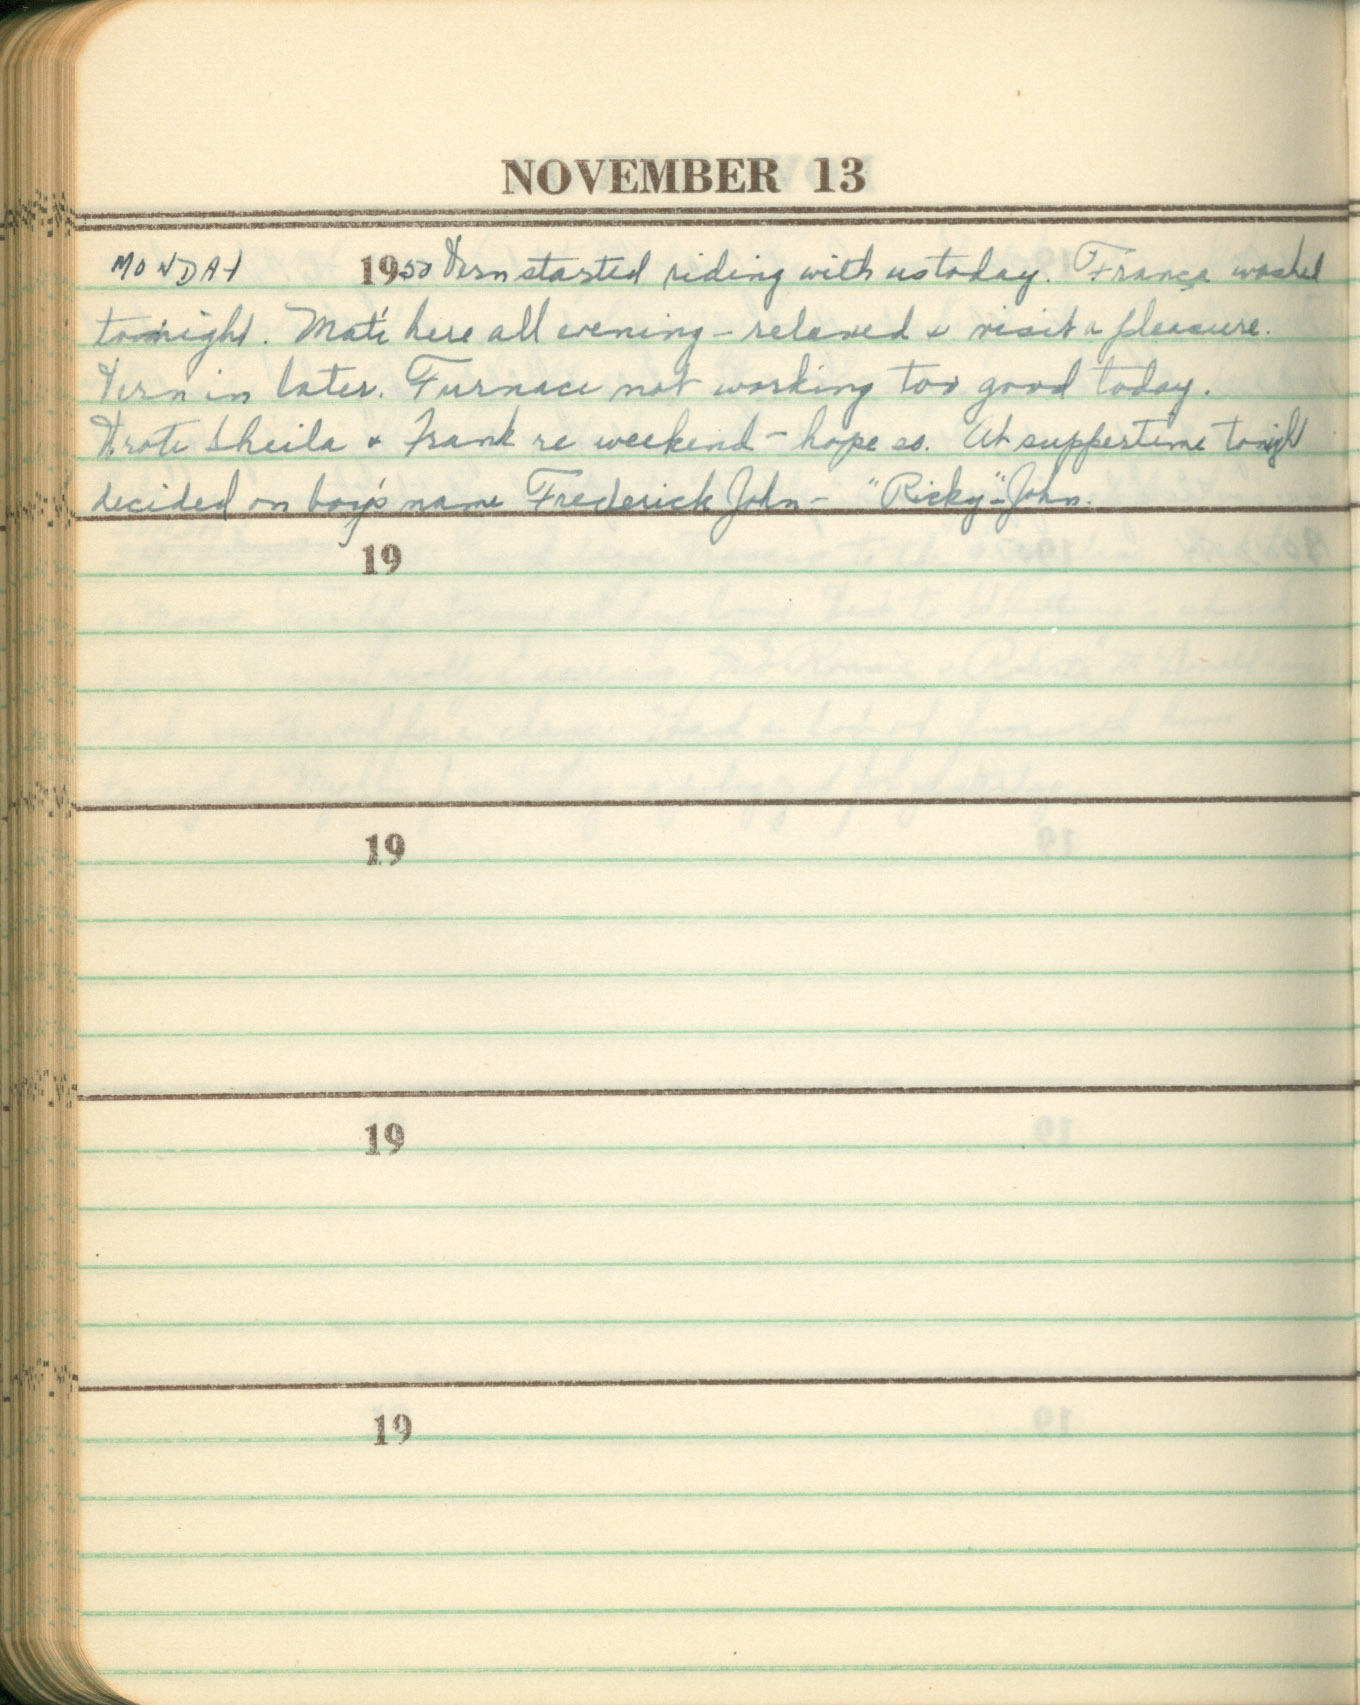 NOVEMBER 13
MONDAY 1950 Vern started riding with us today. Franca washed
tonight. Mate here all evening - relaxed & visit a pleasure.
Vern in later. Furnace not working too good today.
Wrote Sheila & Frank re weekend - hope so. At suppertime tonight
decided on boy's name Frederick John - "Ricky"-John.
19
19
19
19